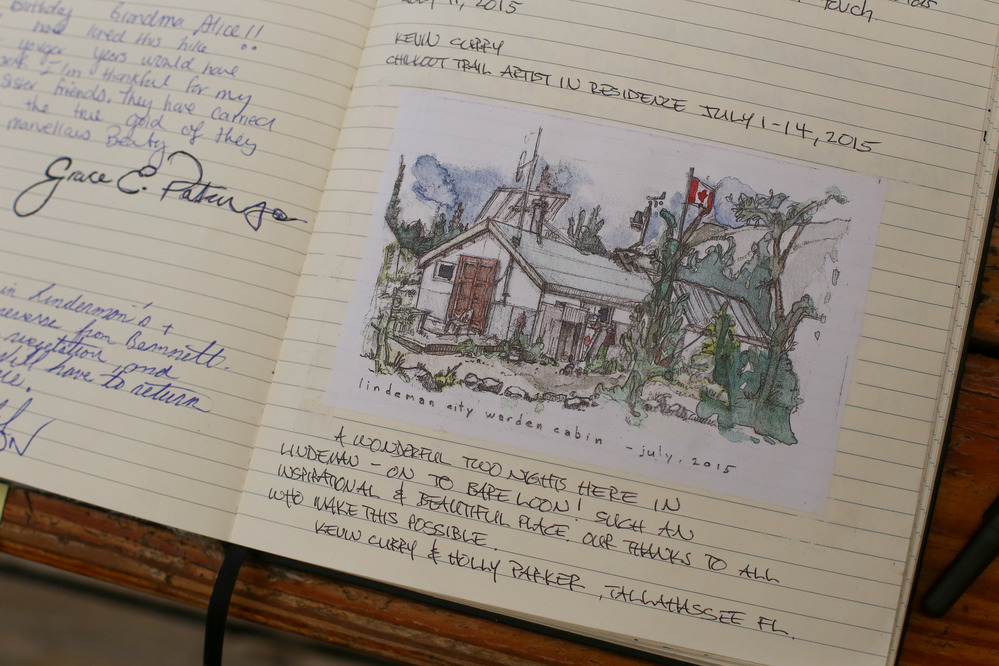 Birthday Grandma Alice!!
have loved this hike !!
years would have
I'm thankful for my
sister friends. They have carried
the true gold of they
marvellous Beaty
Grace E.
in Lindermon's +
reverse from Bennett.
vegetation and
will have to return
touch
July 11, 2015
KEVIN CURRY
CHILKOOT TRAIL ARTIST IN RESIDENCE JULY 1-14, 2015
lindeman city warden cabin - july, 2015
A WONDERFUL TWO NIGHTS HERE IN
LINDEMAN - ON TO BARE LOON! SUCH AN
INSPIRATIONAL & BEAUTIFUL PLACE. OUR THANKS TO ALL
WHO MAKE THIS POSSIBLE.
KEVIN CURRY & HOLLY PARKER, TALLAHASSEE FL.